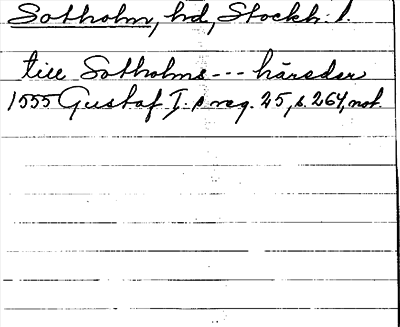 Sotholm, hd, Stockh. l.
till Sotholms --- härader
1555 Gustaf I:s reg. 25, s. 264, not.